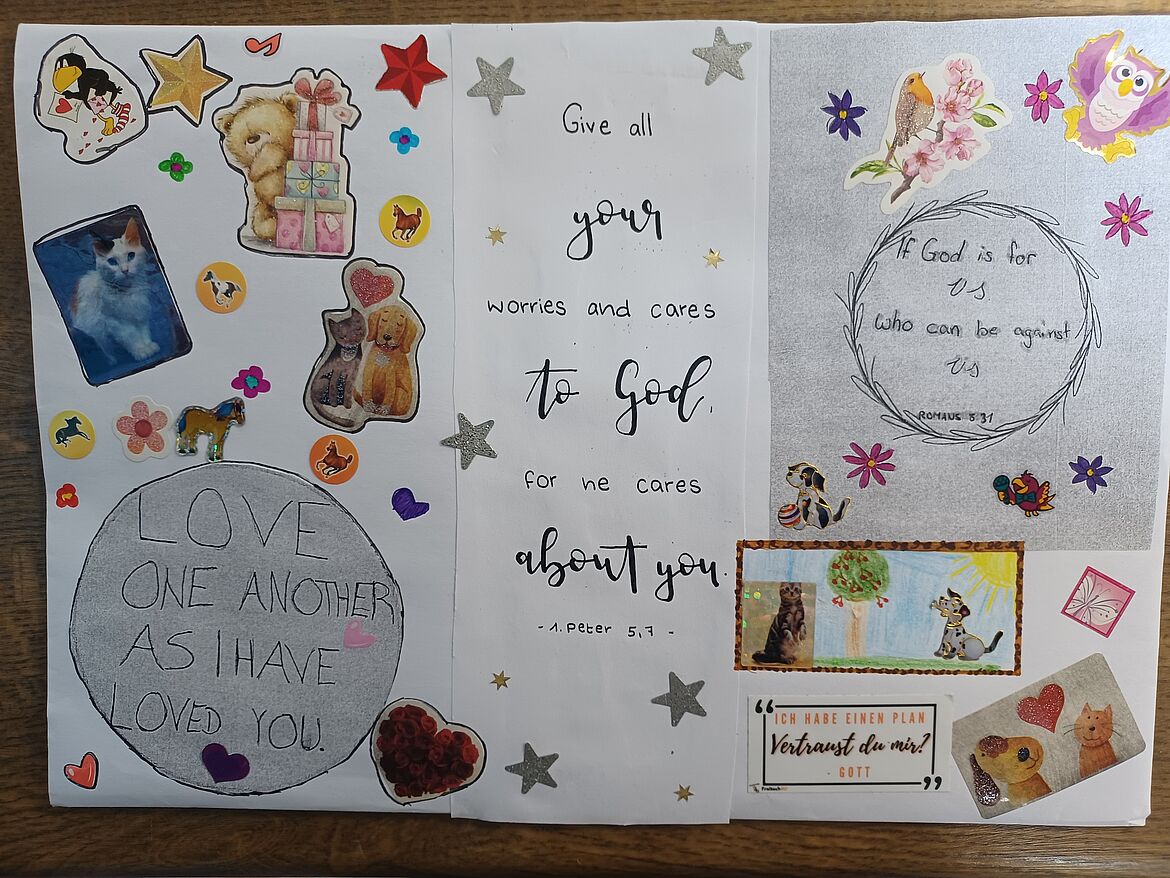 LOVE
ONE ANOTHER
AS I HAVE
LOVED YOU.
Give all
your
worries and cares
to God,
for he cares
about you.
- 1. Peter 5,7 -
If God is for
us
who can be against
us
ROMANS 8.31
“ICH HABE EINEN PLAN
Vertraust du mir?
- GOTT ”